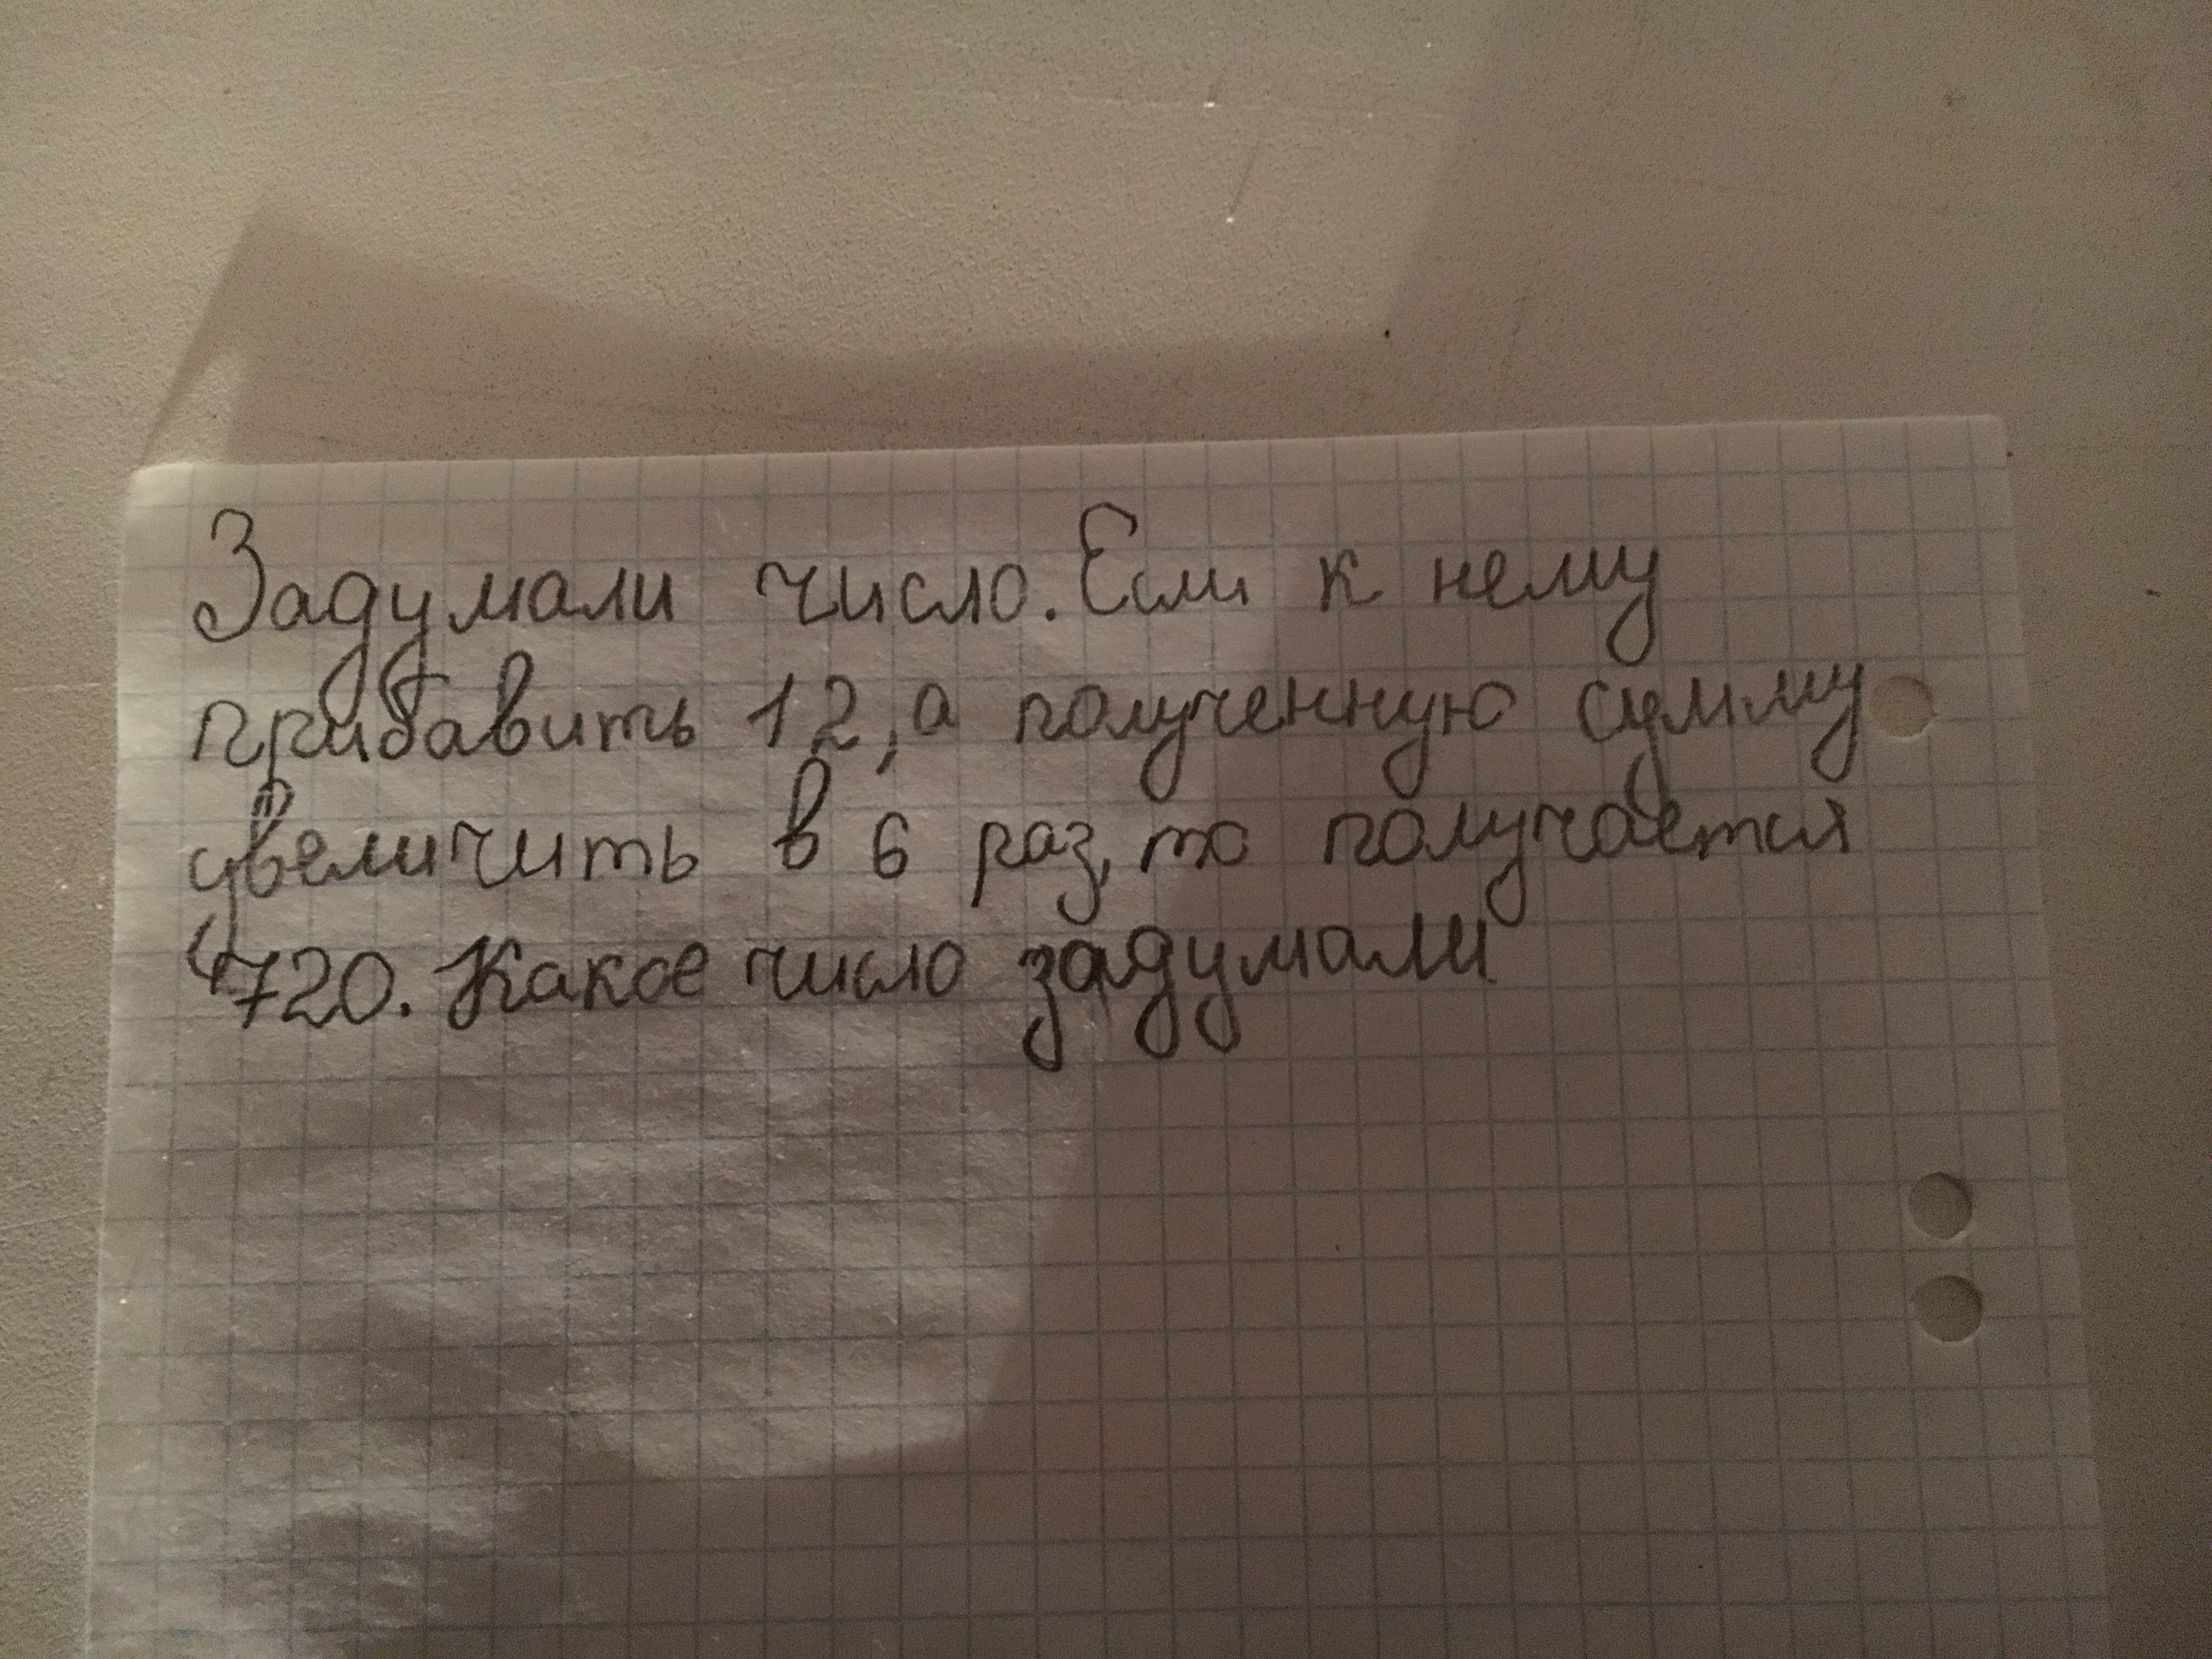 Задумали число. Если к нему
прибавить 12, а полученную сумму
увеличить в 6 раз, то получается
4720. Какое число задумали